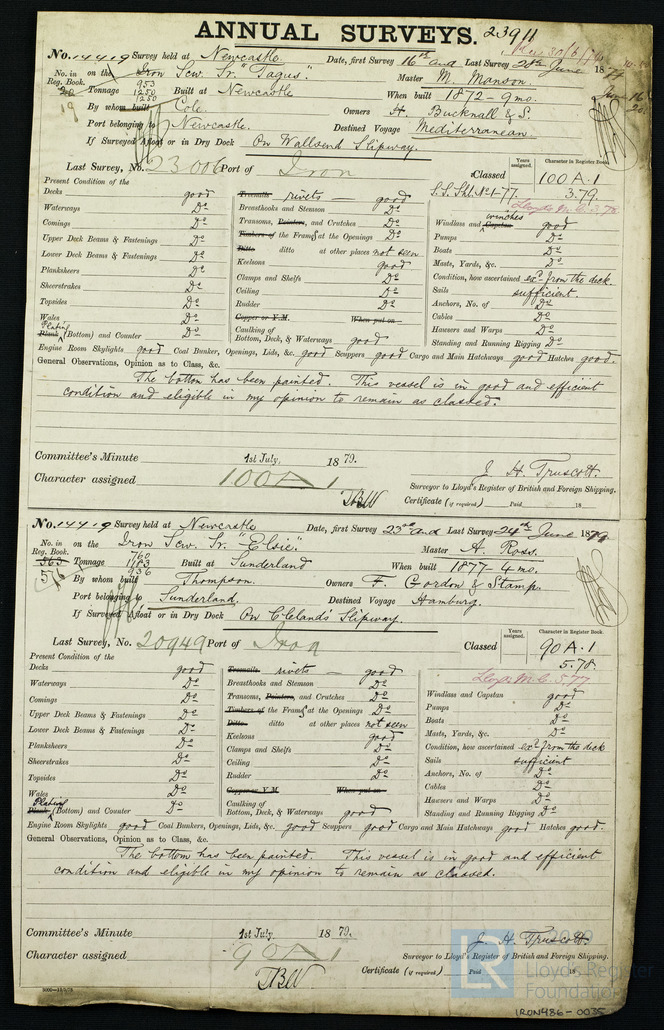 ANNUAL SURVEYS. 23911
No. 14419 Survey held at Newcastle. Date, first Survey 16th and Last Survey 20th June 1879
No. in Reg. Book. on the Iron Scw. Sr. "Tagus". Master M. Manson.
953
20 Tonnage 1250 Built at Newcastle When built 1872-9mo.
1250
19 By whom built Cole. Owners H. Bucknall & S.
Port belonging to Newcastle. Destined Voyage Mediterranean.
If Surveyed Afloat or in Dry Dock On Wallsend Slipway.
Last Survey, No. 23006 Port of Iron Classed
Years assigned. Character in Register Book.
100 A.1
S.S. Shl. No1-77 3.79.
Lloyds M.C. 3.78
Present Condition of the
Decks good Treenails rivets good
Waterways Do Breasthooks and Stemson Do
Comings Do Transoms, Pointers, and Crutches Do Windlass and Capstan winches good
Upper Deck Beams & Fastenings Do Timbers of the Frames at the Openings Do Pumps Do
Ditto ditto at other places not seen Boats Do
Lower Deck Beams & Fastenings Do Keelsons good Masts, Yards, &c. Do
Planksheers Do Clamps and Shelfs Do Condition, how ascertained exn from the deck
Sheerstrakes Do Ceiling Do Sails sufficient.
Topsides Do Rudder Do Anchors, No. of Do
Wales Do Copper or Y.M. When put on Cables Do
Plank Plating (Bottom) and Counter Do Caulking of Bottom, Deck, & Waterways good Hawsers and Warps Do
Standing and Running Rigging Do
Engine Room Skylights good Coal Bunker, Openings, Lids, &c. good Scuppers good Cargo and Main Hatchways good Hatches good.
General Observations, Opinion as to Class, &c.
The bottom has been painted. This vessel is in good and efficient
condition and eligible in my opinion to remain as classed.
Committee's Minute 1st July, 1879.
Character assigned 100 A 1 J. H. Truscott.
Surveyor to Lloyd's Register of British and Foreign Shipping.
TBW Certificate (if required) Paid 18
No. 14419 Survey held at Newcastle Date, first Survey 23rd and Last Survey 24th June 1879
No. in Reg. Book. on the Iron Scw. Sr. "Elsie". Master A. Ross.
760
565 Tonnage 1183 Built at Sunderland When built 1877-4mo.
936
516 By whom built Thompson. Owners F. Gordon & Stamp.
Port belonging to Sunderland. Destined Voyage Hamburg.
If Surveyed Afloat or in Dry Dock On Cleland's Slipway.
Last Survey, No. 20949 Port of Iron Classed
Years assigned. Character in Register Book.
90 A.1
5.78
Lloyds M.C. 5.77
Present Condition of the
Decks good Treenails rivets good
Waterways Do Breasthooks and Stemson Do Windlass and Capstan good
Comings Do Transoms, Pointers, and Crutches Do Pumps Do
Upper Deck Beams & Fastenings Do Timbers of the Frames at the Openings Do Boats Do
Ditto ditto at other places not seen Masts, Yards, &c. Do
Lower Deck Beams & Fastenings Do Keelsons good
Planksheers Do Clamps and Shelfs Do Condition, how ascertained exn from the deck
Sheerstrakes Do Ceiling Do Sails sufficient
Topsides Do Rudder Do Anchors, No. of Do
Wales Do Copper or Y.M. When put on Cables Do
Plank Plating (Bottom) and Counter Do Caulking of Bottom, Deck, & Waterways good Hawsers and Warps Do
Standing and Running Rigging Do
Engine Room Skylights good Coal Bunkers, Openings, Lids, &c. good Scuppers good Cargo and Main Hatchways good Hatches good.
General Observations, Opinion as to Class, &c.
The bottom has been painted. This vessel is in good and efficient
condition and eligible in my opinion to remain as classed.
Committee's Minute 1st July, 1879.
Character assigned 90 A 1 J. H. Truscott.
Surveyor to Lloyd's Register of British and Foreign Shipping.
TBW Certificate (if required) Paid 18
LR Lloyd's Register Foundation
IRON486-0035